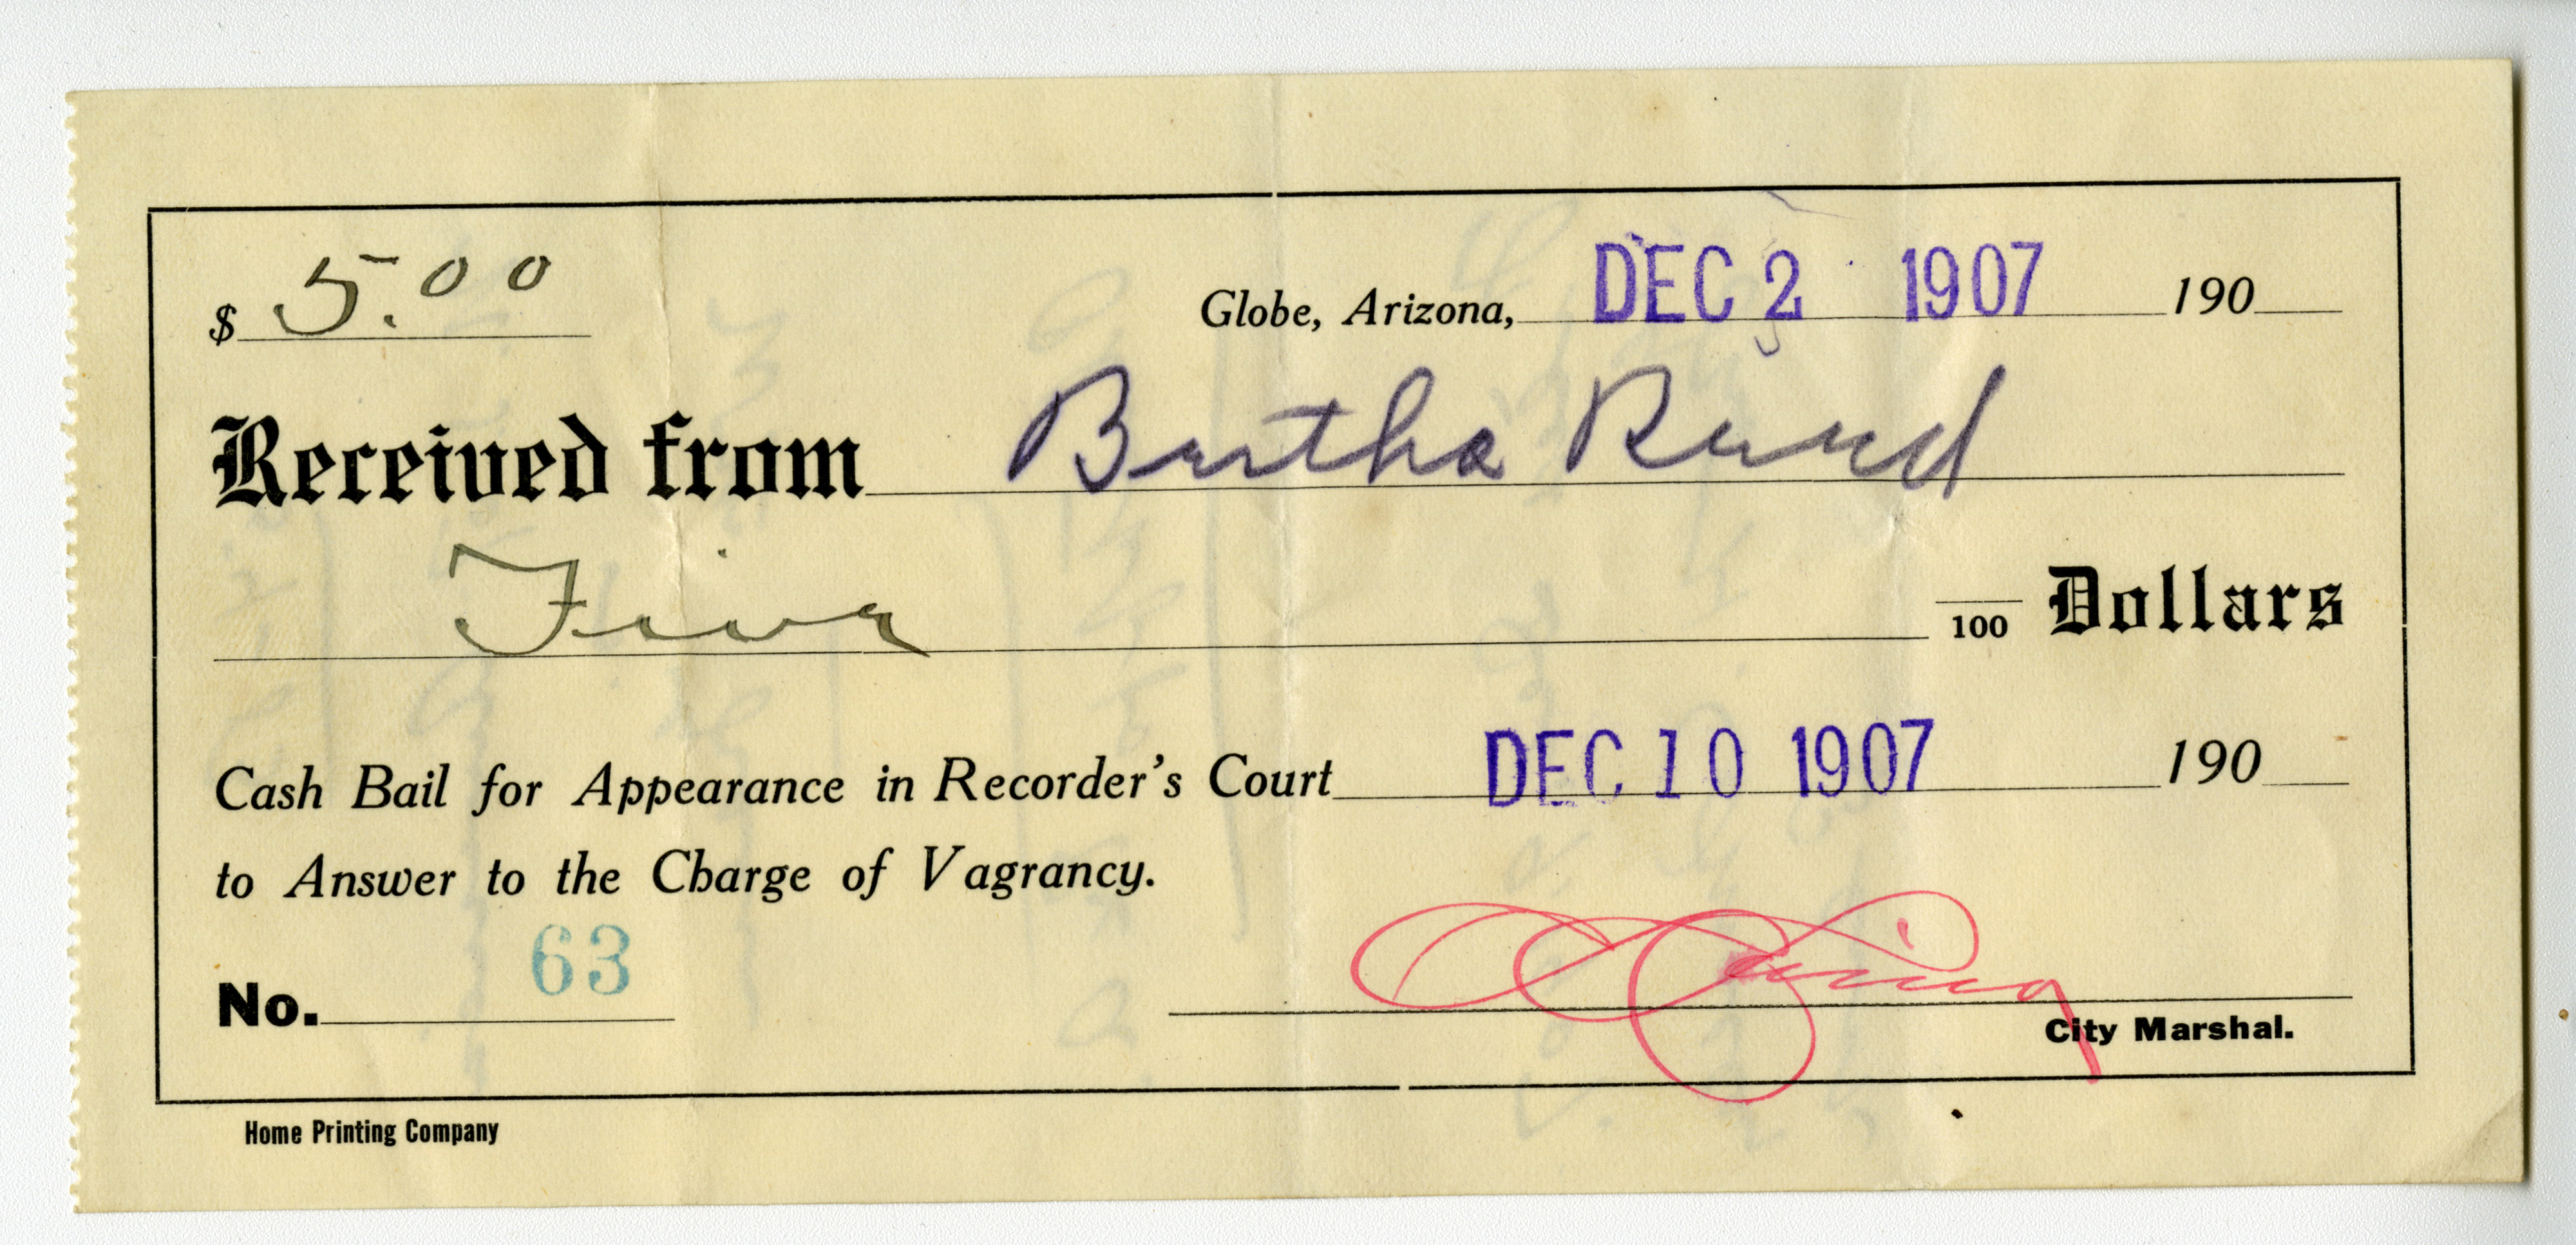 $ 5.00 Globe, Arizona, DEC 2 1907 190
Received from Bertha
Five 100 Dollars
Cash Bail for Appearance in Recorder's Court DEC 10 1907 190
to Answer to the Charge of Vagrancy.
No. 63
City Marshal.
Home Printing Company